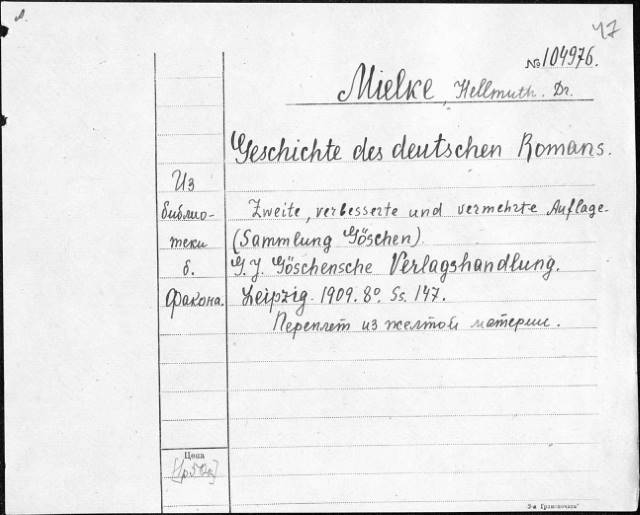 47
№ 104976.
Mielke, Hellmuth. Dr.
Geschichte des deutschen Romans.
Из
библио-
теки
б.
Факона.
Zweite, verbesserte und vermehrte Auflage.
(Sammlung Göschen).
G. J. Göschensche Verlagshandlung.
Leipzig. 1909. 8º. Ss. 147.
Переплет из желтой материи.
Цена